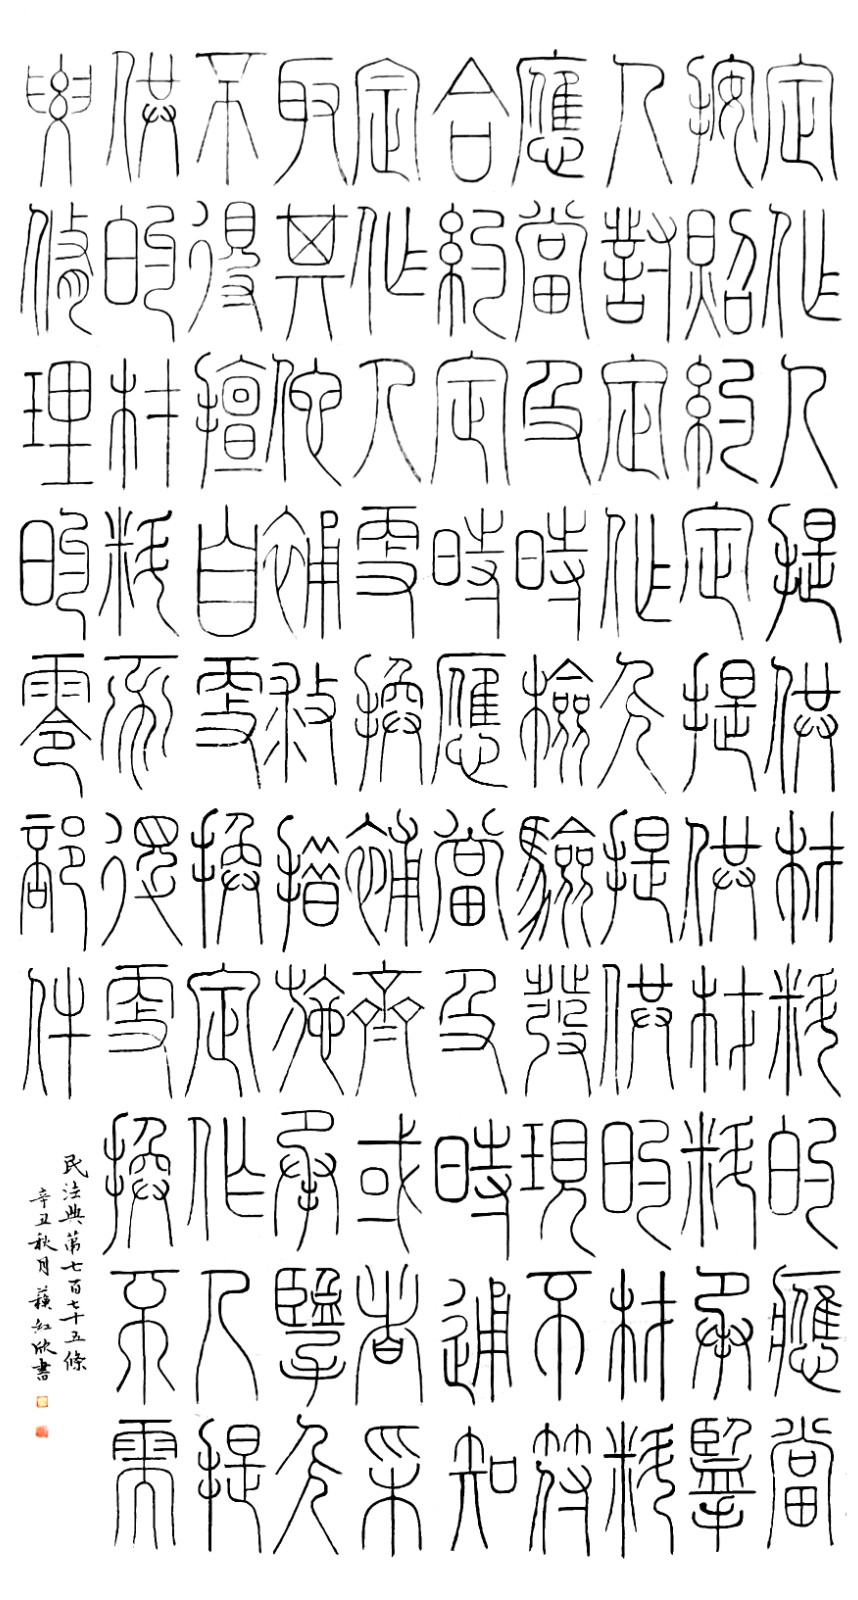 定作人提供材料的應當
按照約定提供材料承攬
人對定作人提供的材料
應當及時檢驗發現不符
合約定時應當及時通知
定作人更換補齊或者采
取其他補救措施承攬人
不得擅自更換定作人提
供的材料不得更換不需
要修理的零部件
民法典第七百七十五條
辛丑秋月蘇紅欣書